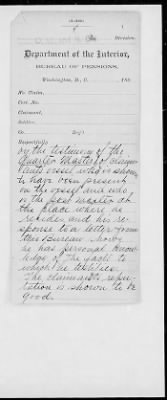 Division.
Department of the Interior,
BUREAU OF PENSIONS,
Washington, D. C. 188
No. Claim,
Cert. No.
Claimant,
Soldier,
Co. Reg't
Respectfully
on the testimony of the
Quarter Master of claim
ants vessel who is shown
to have been present
on the vessel and who
is the post master at
the place where he
resides and his re-
sponse to a letter from
this Bureau shows
he has personal know
ledge of the facts to
which he testifies.
The claimants repu-
tation is shown to be
good.